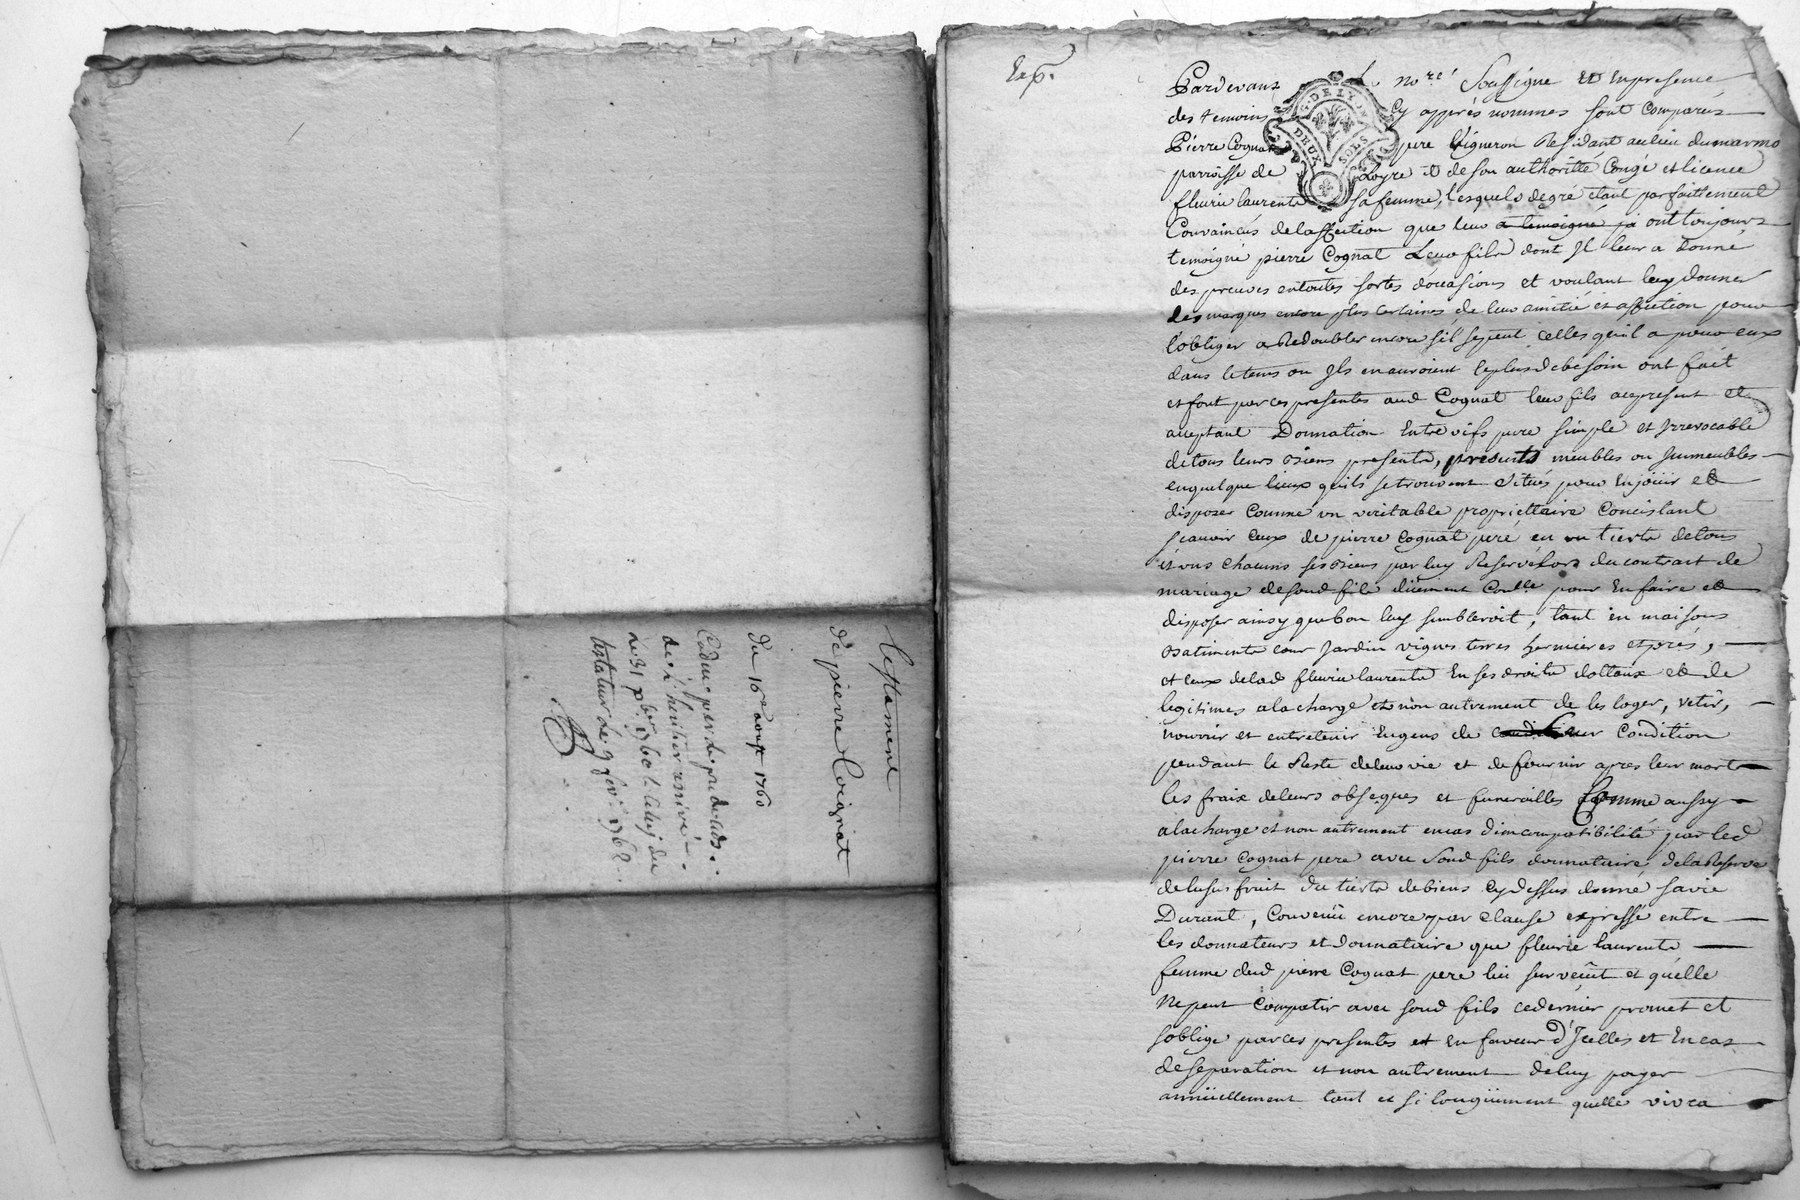 testament
de pierre Coignat
du 16e aoust 1760
Caduc per de
de L'heritier arrivé
le 31 xbre 1760
testateur le 9 fevr 1762
Exp.
Pardevant Le nore Soussigne Et En presence
des temoins Cy apprés nommes sont Comparus
Pierre Cognat pere Vigneron Residant au lieu du marmo
parroisse de Loyre et de son authorité Congé et licence
fleurie laurente sa femme, lesquels de gré etant parfaittement
Convaincus de laffection que leur a temoigne ja ont toujours
temoigné pierre Cognat Leur fils dont Il leur a donné
des preuves en toutes sortes d'ocasions et voulant luy donner
des marques encore plus certaines de leur amitié et affection pour
l'obliger a Redoubler encore s'il se peut celles qu'il a pour eux
dans le tems ou Ils en auroient le plus de besoin ont fait
et font par ces presentes aud Cognat leur fils acepresent et
acceptant Donnation Entre vifs pure simple et Irrevocable
de tous leurs biens presents, presents meubles ou Immeubles
en quelque lieux qu'ils se trouvent situés pour En jouir et
disposer Comme un veritable propriettaire Concistant
scavoir ceux de pierre Cognat pere en un tierts de tous
et uns chacuns ses biens par luy Reservé lors du contract de
mariage de sond fils duement Conlle pour En faire et
disposer ainsy que bon luy sembleroit, tant en maisons
batiments cour Jardin vignes terres hermieres et prés,
et ceux de lad fleurie laurente En ses droits dottaux et de
legitimes a la charge et non autrement de les loger, vetir,
nourrir et entretenir En gens de Condition
pendant le Reste de leur vie et de fournir apres leur mort
les fraix de leurs obseques et funerailles Comme aussy
a la charge et non autrement en cas d'imcompatibilité par led
pierre Cognat pere avec Sond fils donnataire de la Reserve
de lusus fruit du tierts de biens Cydessus donné sa vie
Durant, Convenu encore par clause expresse entre
les donnateurs et donnataire que fleurie laurente
femme dud pierre Cognat pere lui survecut et qu'elle
ne peut Compatir avec sond fils ce dernier promet et
s'oblige par ces presentes et En faveur d'Icelles et En cas
de separation et non autrement de luy payer
annüellement tant et si longüement quelle vivra
G. DE LYON
DEUX SOLS